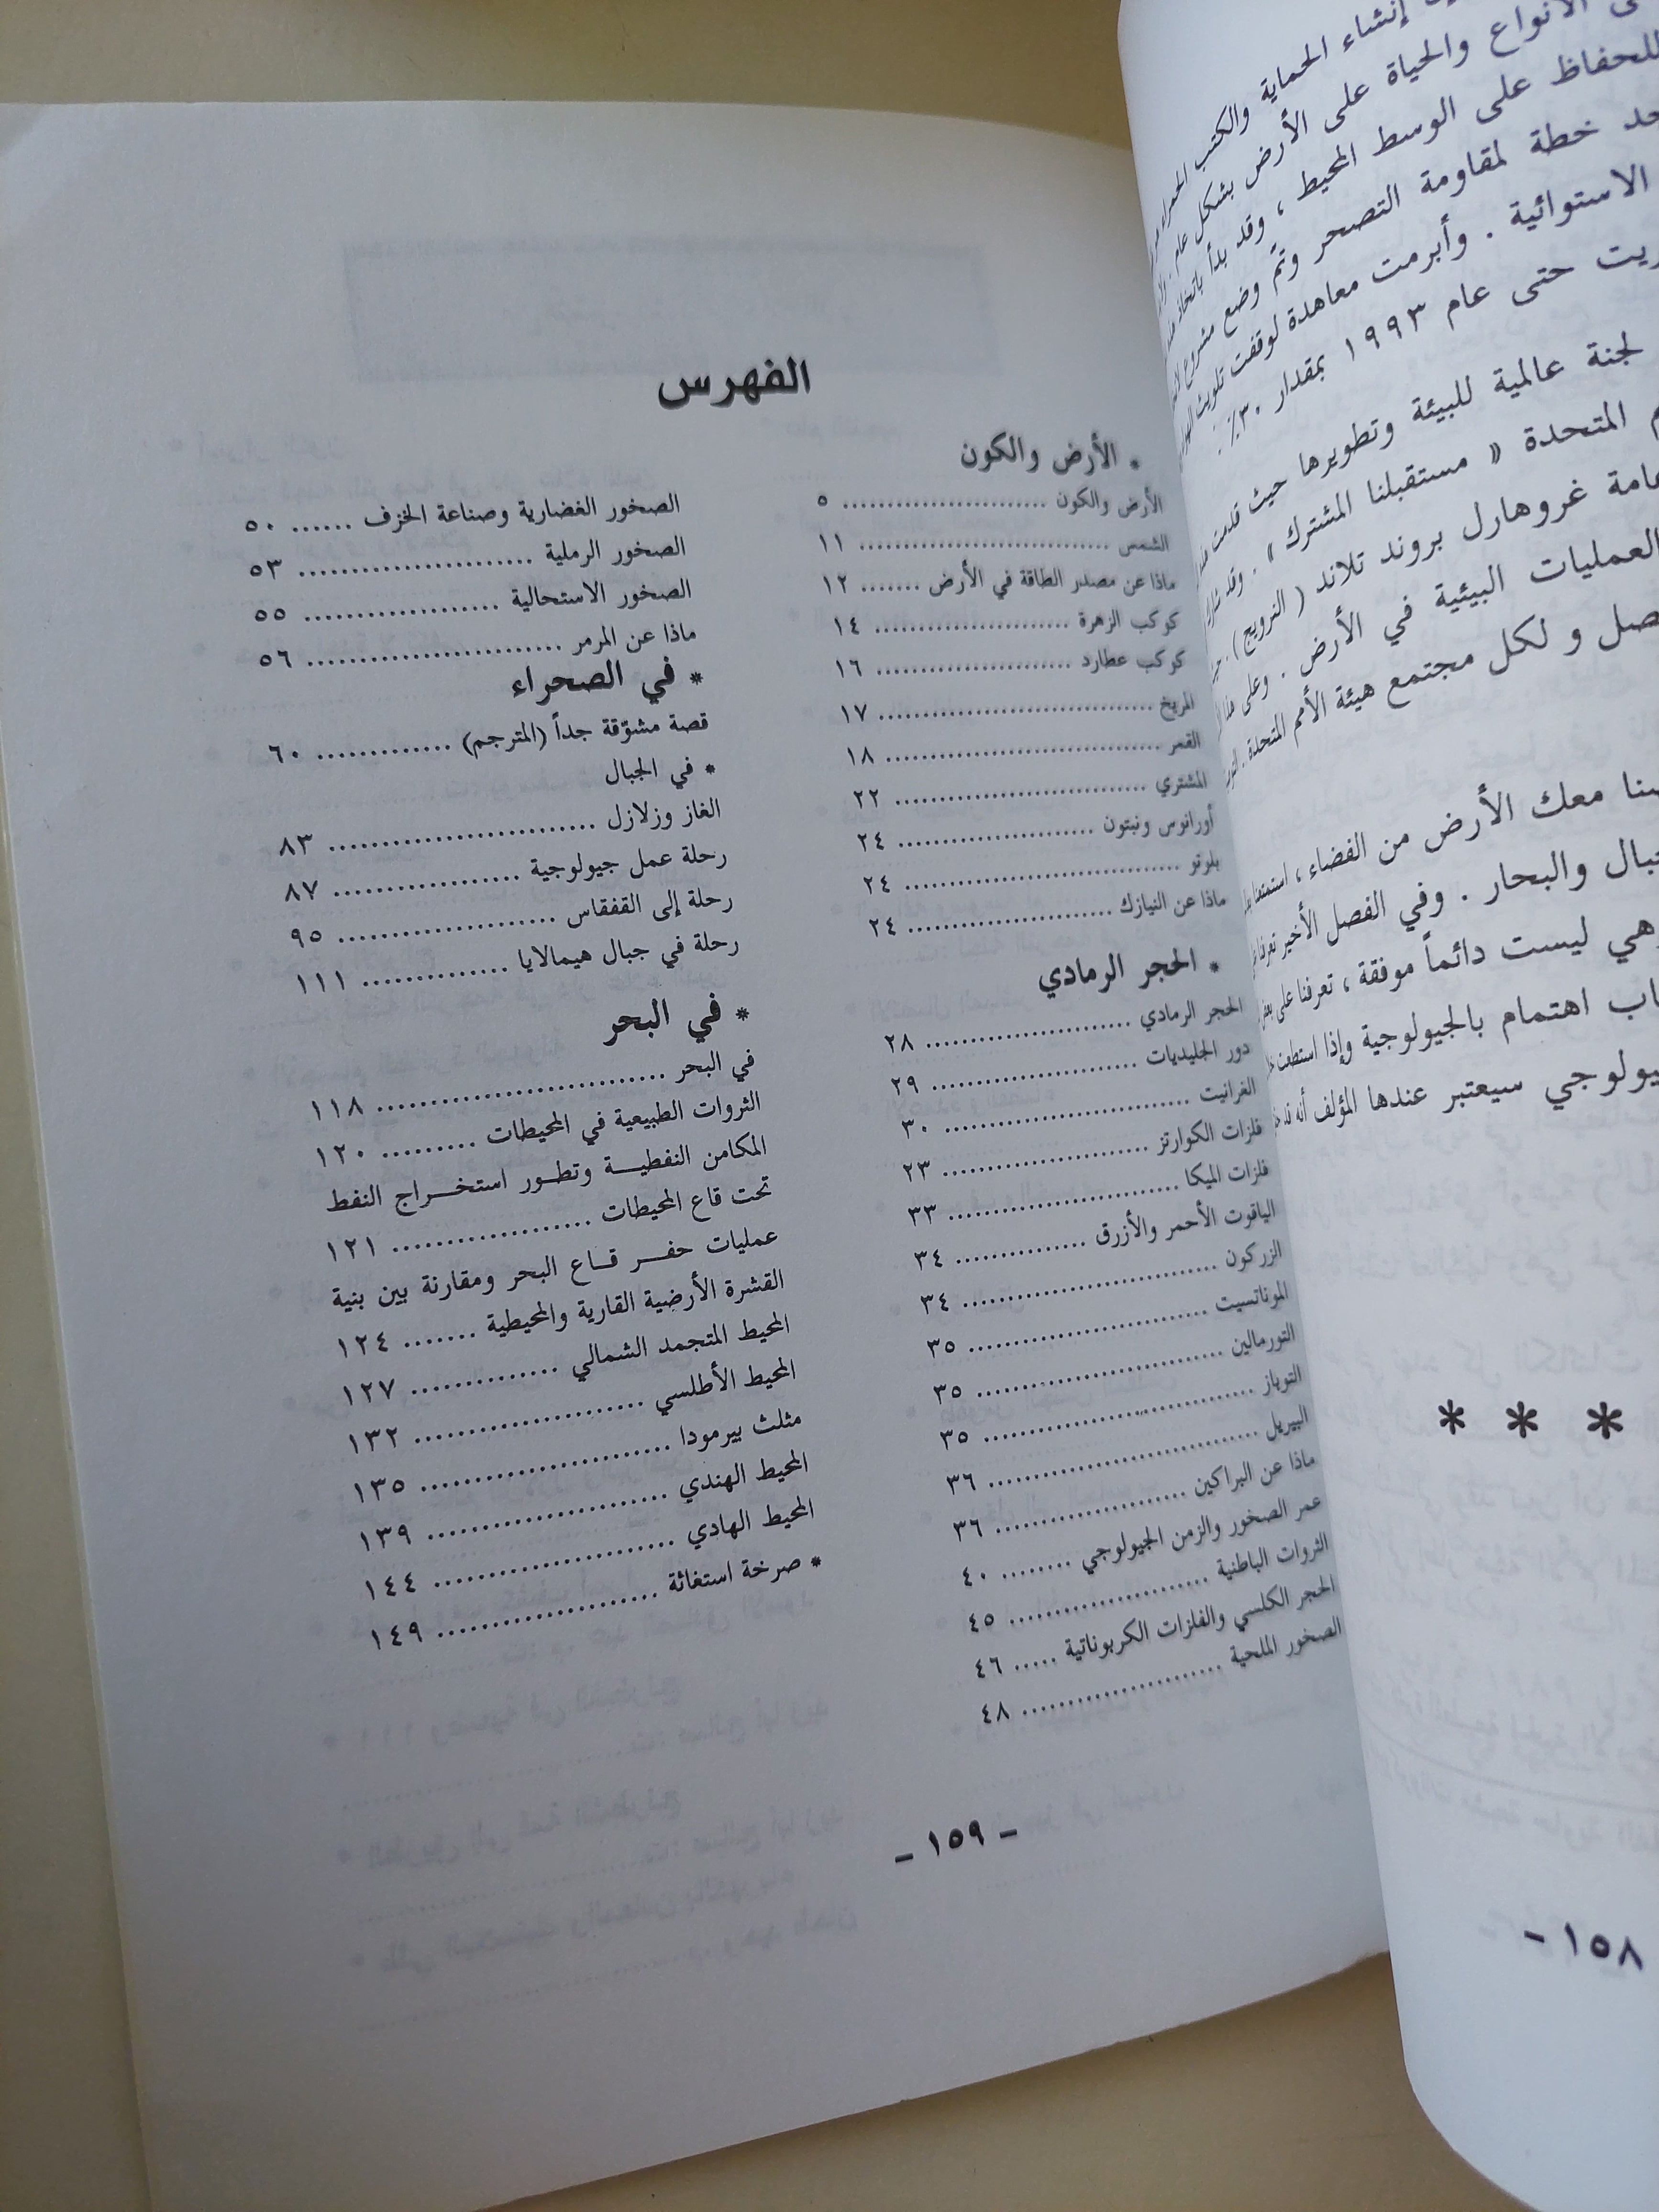 إنشاء الحماية والكتب الحمراء
الأنواع والحياة على الأرض بشكل عام
للحفاظ على الوسط المحيط ، وقد بدأ باتخاذ
خطة لمقاومة التصحر وتمّ وضع مشروع
الاستوائية . وأبرمت معاهدة لوقفت تلويث
حتى عام ١٩٩٣ بمقدار ٣٠٪ .
لجنة عالمية للبيئة وتطويرها حيث قدمت
المتحدة « مستقبلنا المشترك » . وقد
غروهارل بروند تلاند ( النرويج ) .
العمليات البيئية في الأرض . وعلى هذا
و لكل مجتمع هيئة الأمم المتحدة .
معك الأرض من الفضاء ، استمتعنا
والبحار . وفي الفصل الأخير تعرفنا
وهي ليست دائماً موفقة ، تعرفنا على بعض
اهتمام بالجيولوجية وإذا استطعت
سيعتبر عندها المؤلف أنه قد
* * *
١٥٨ -
الفهرس
* الأرض والكون
الأرض والكون ........................ ٥
الشمس ............................ ١١
ماذا عن مصدر الطاقة في الأرض ....... ١٢
كوكب الزهرة ...................... ١٤
كوكب عطارد ...................... ١٦
المريخ ............................... ١٧
القمر ............................... ١٨
المشتري ............................ ٢٢
أورانوس ونبتون ...................... ٢٤
بلوتو ............................... ٢٤
ماذا عن النيازك ...................... ٢٤
* الحجر الرمادي
الحجر الرمادي ....................... ٢٨
دور الجليديات ....................... ٢٩
الغرانيت ............................ ٣٠
فلزات الكوارتز ....................... ٢٣
فلزات الميكا .......................... ٣٣
الياقوت الأحمر والأزرق ............... ٣٤
الزركون ............................ ٣٤
المونانسيت .......................... ٣٥
التورمالين ............................ ٣٥
التوباز .............................. ٣٥
البيريل .............................. ٣٦
ماذا عن البراكين ..................... ٣٦
عمر الصخور والزمن الجيولوجي ........ ٤٠
الثروات الباطنية ...................... ٤٥
الحجر الكلسي والفلزات الكربوناتية ..... ٤٦
الصخور الملحية ....................... ٤٨
الصخور الغضارية وصناعة الخزف ...... ٥٠
الصخور الرملية ........................ ٥٣
الصخور الاستحالية ................... ٥٥
ماذا عن المرمر ........................ ٥٦
* في الصحراء
قصة مشوّقة جداً (المترجم) ............. ٦٠
* في الجبال
الغاز وزلازل ......................... ٨٣
رحلة عمل جيولوجية .................. ٨٧
رحلة إلى القفقاس ...................... ٩٥
رحلة في جبال هيمالايا .............. ١١١
* في البحر
في البحر ............................ ١١٨
الثروات الطبيعية في المحيطات ......... ١٢٠
المكامن النفطيـــة وتطـــور استخـــراج النفط
تحت قاع المحيطات .................. ١٢١
عمليات حفـــر قـــاع البحر ومقارنة بين بنية
القشرة الأرضية القارية والمحيطية ....... ١٢٤
المحيط المتجمد الشمالي .............. ١٢٧
المحيط الأطلسي ...................... ١٣٢
مثلث بيرمودا ........................ ١٣٥
المحيط الهندي ....................... ١٣٩
المحيط الهادي ........................ ١٤٤
* صرخة استغاثة ..................... ١٤٩
- ١٥٩ -